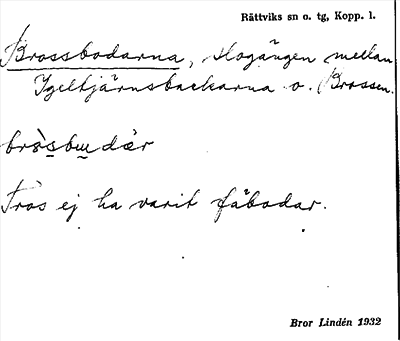 Rättviks sn o. tg, Kopp. l.
Brossbodarna, skogången mellan
Igeltjärnsbackarna o. Brossen.
bròsbudär
Tros ej ha varit fäbodar.
Bror Lindén 1932